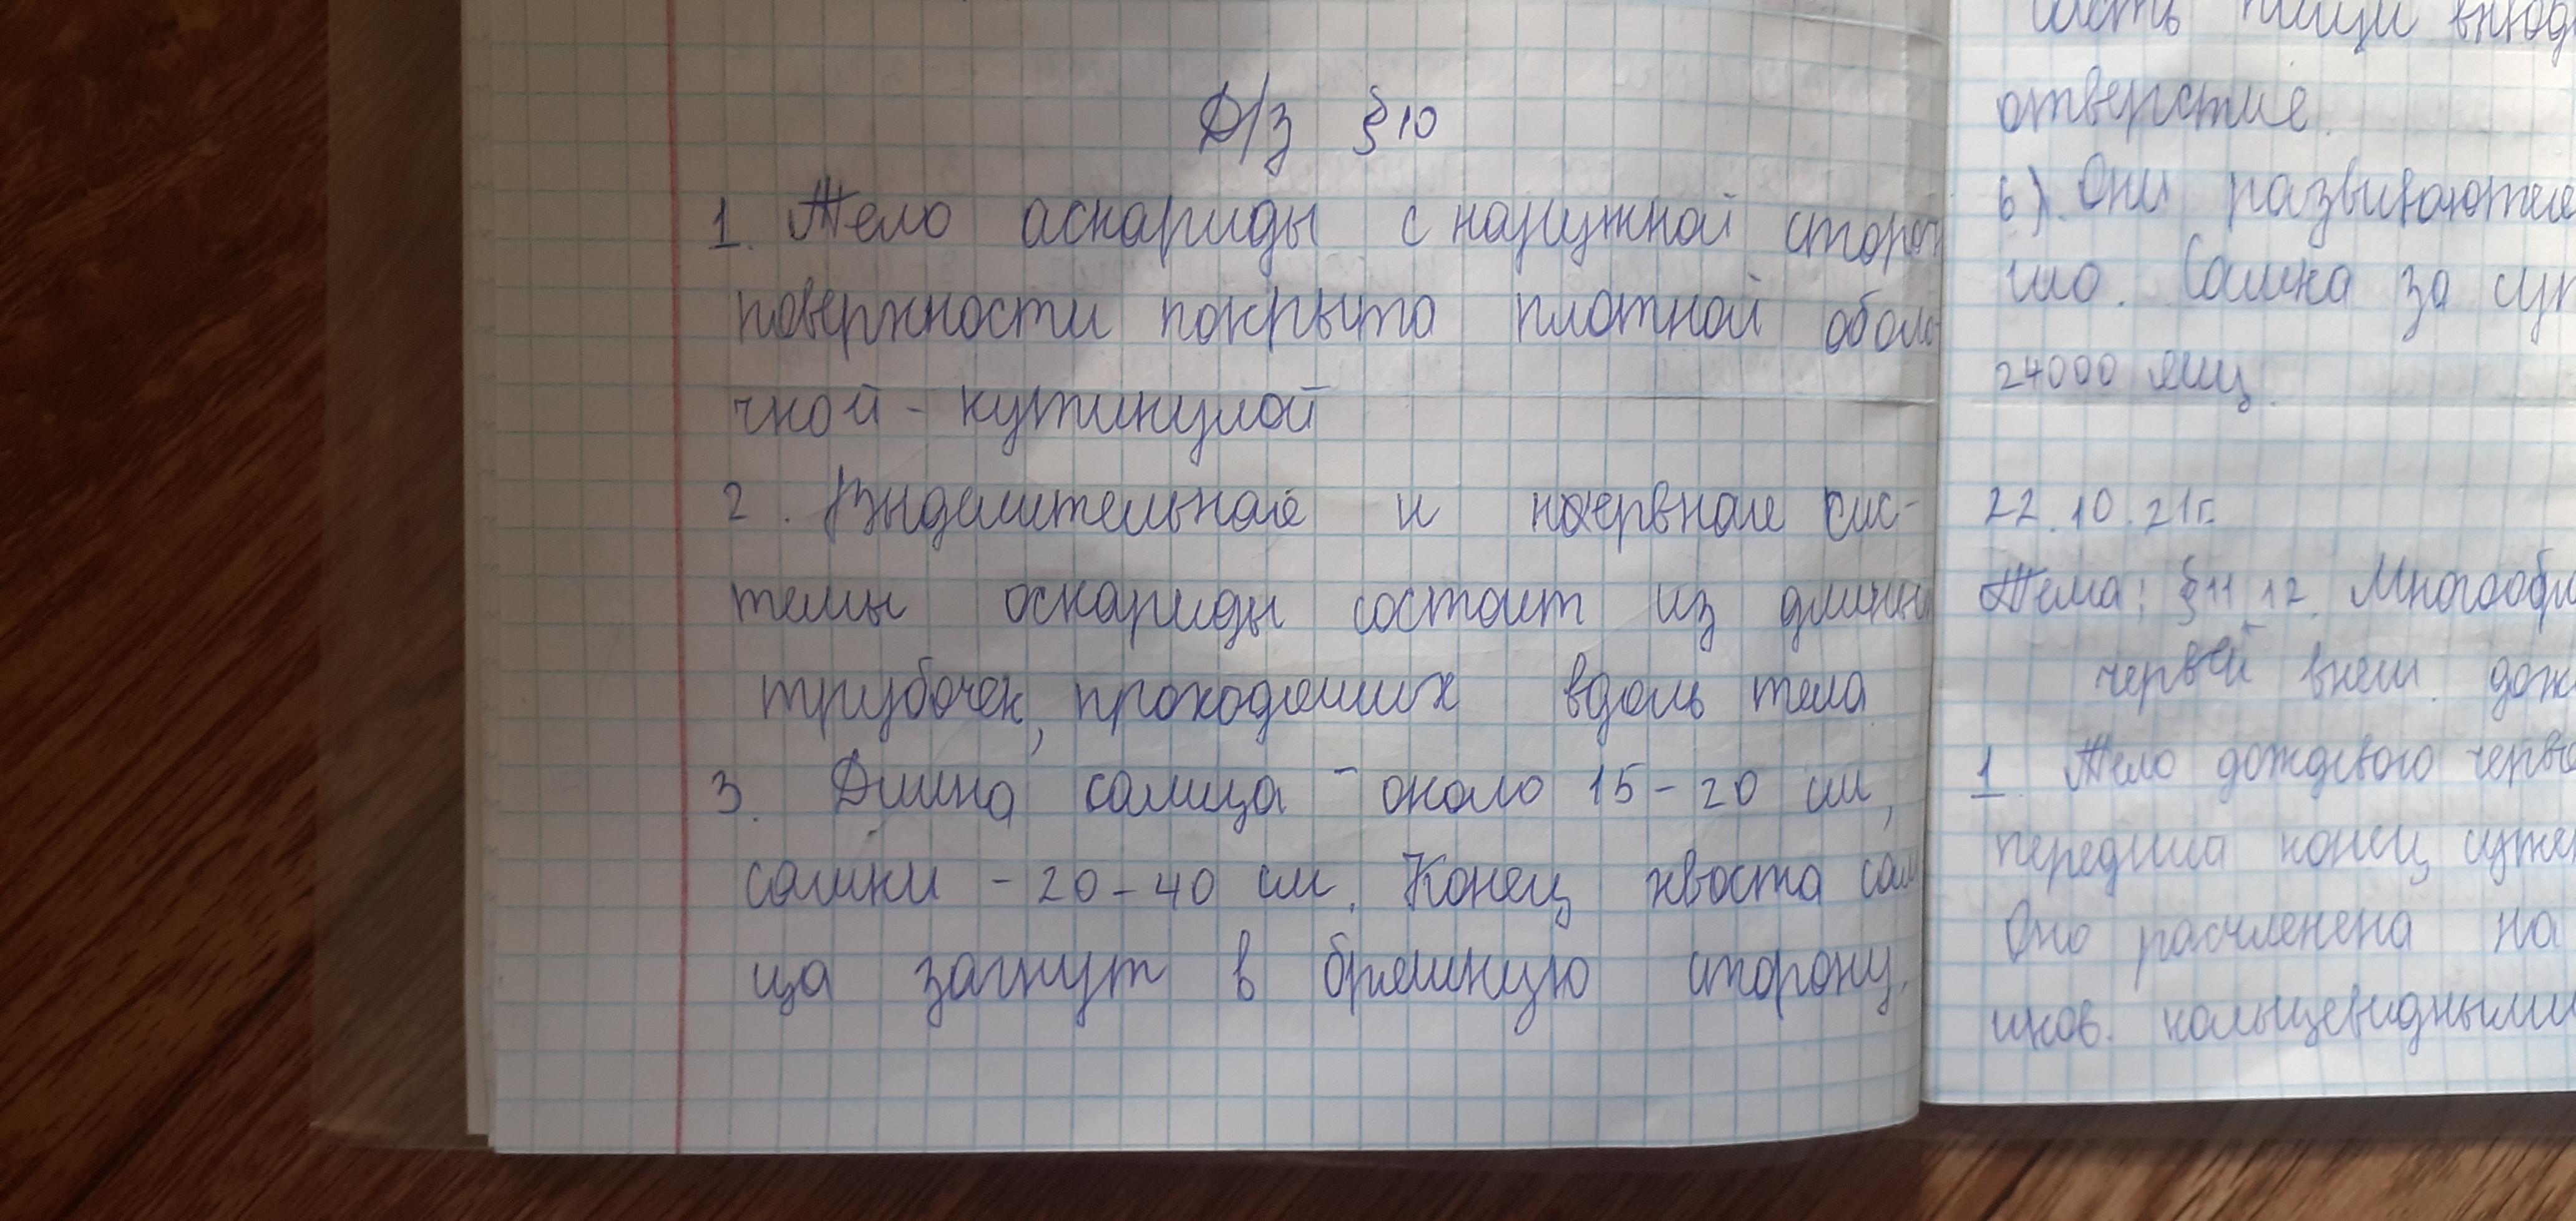 Д/з §10
1. Тело аскариды с наружной сторон
поверхности покрыто плотной оболо
чкой - кутикулой
2. Выделительная и нервная сис-
темы оскариды состоит из длинны
трубочек, проходящих вдоль тела
3. Длина самца - около 15-20 см,
самки - 20-40 см. Конец хвоста сам
ца загнут в брюшную сторону.
часть пищи
отверстие.
6). Они развиваются
що. Самка за сут
24000 яиц.
22.10.21г.
Тема: §11 12. Многообр
червей внеш. дож
1. Тело дождевого черве
передний конец суже
Оно расчленена на
иков. кольцевидными